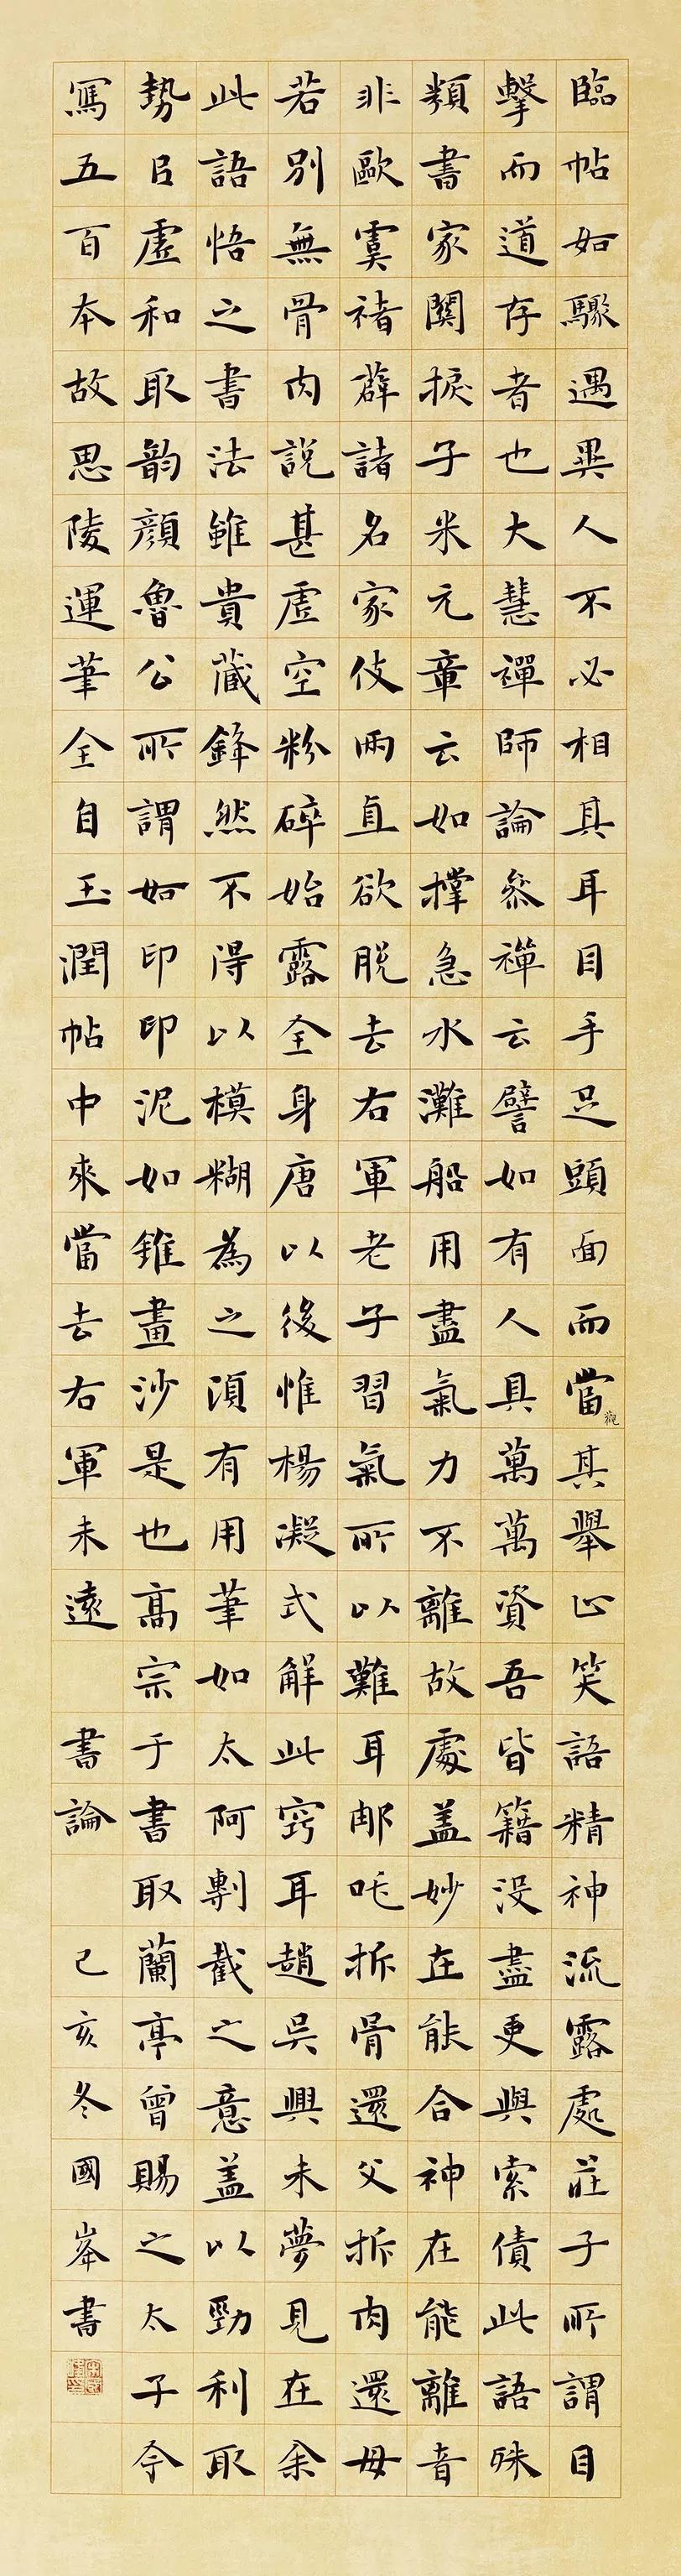 臨帖如驟遇異人不必相其耳目手足頭面而當觀其舉止笑語精神流露處莊子所謂目
擊而道存者也大慧禪師論參禪云譬如有人具萬萬資吾皆籍沒盡更與索債此語殊
類書家關捩子米元章云如撑急水灘船用盡氣力不離故處盖妙在能合神在能離音
非歐虞褚薛諸名家伎兩直欲脫去右軍老子習氣所以難耳那吒拆骨還父拆肉還母
若別無骨肉說甚虛空粉碎始露全身唐以後惟楊凝式解此竅耳趙吳興未夢見在余
此語悟之書法雖貴藏鋒然不得以模糊為之須有用筆如太阿剸截之意盖以勁利取
勢㠯虛和取韻顏魯公所謂如印印泥如錐畫沙是也高宗于書取蘭亭曾賜之太子令
寫五百本故思陵運筆全自玉潤帖中來當去右軍未遠 書論 己亥冬國峯書